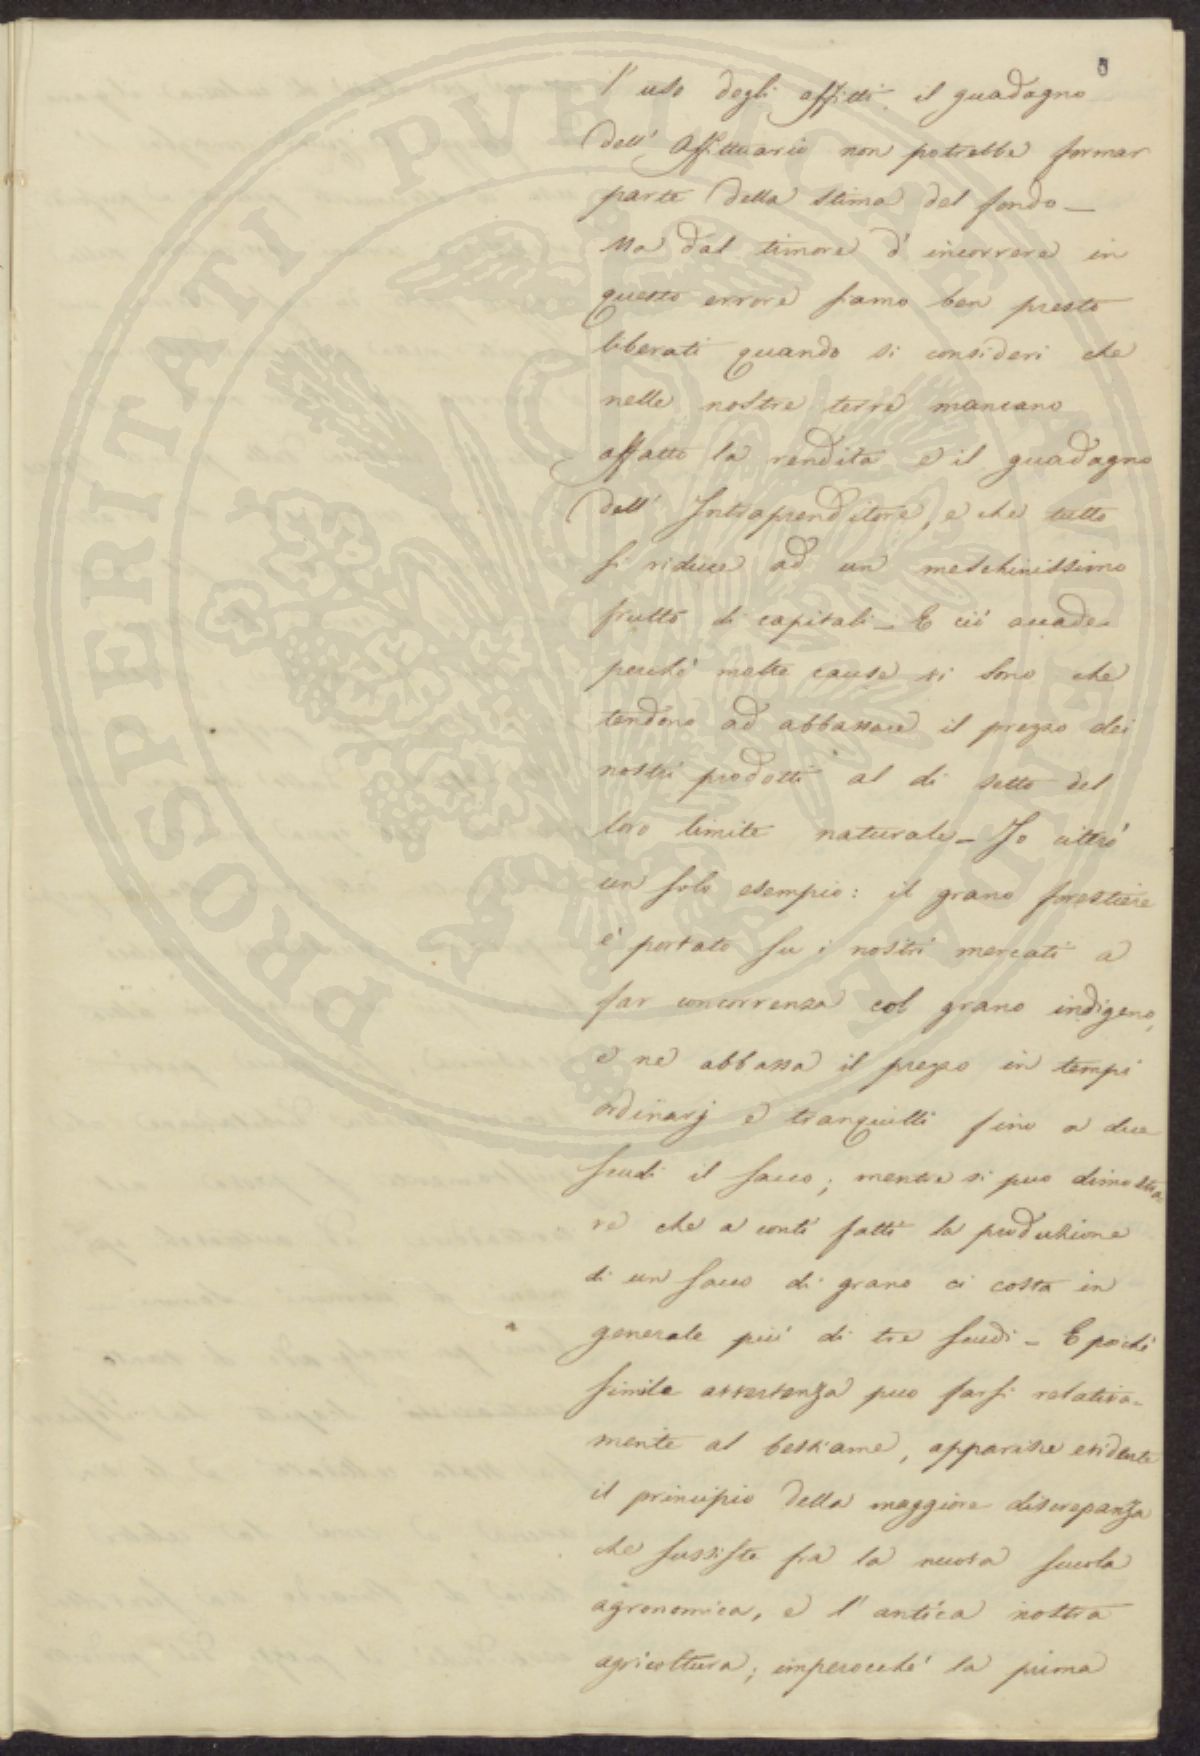 l'uso degli affitti il guadagno
dell'Affittuario non potrebbe formar
parte della stima del fondo_
Ma dal timore d'incorrere in
questo errore siamo ben presto
liberati quando si consideri che
nelle nostre terre mancano
affatto la rendita e il guadagno
dell'Intraprenditore, e che tutto
si riduce ad un meschinissimo
frutto di capitali_ E ciò accade
perchè molte cause vi sono che
tendono ad abbassare il prezzo dei
nostri prodotti al di sotto del
loro limite naturale_ Io citerò
un solo esempio: il grano forestiere
è portato su i nostri mercati a
far concorrenza col grano indigeno,
e ne abbassa il prezzo in tempi
ordinarj e tranquilli fino a due
scudi il sacco; mentre si puo dimostra
re che a conti fatti la produzione
di un sacco di grano ci costa in
generale più di tre scudi_ E poichè
simile avvertenza puo farsi relativa-
mente al bestiame, apparisce evidente
il principio della maggiore discrepanza
che sussiste fra la nuova scuola
agronomica, e l'antica nostra
agricoltura; imperocchè la prima
PROSPERITATI PVBLICAE AVGENDAE